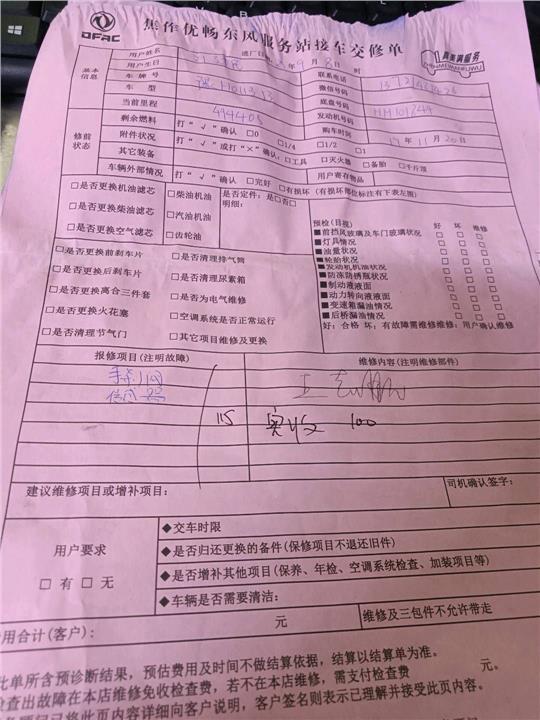 DFAC
焦作优畅东风服务站接车交修单
真美满服务
ZHENMEIMANFUWU
用户姓名
进厂日期: 年9月8日 时
基本信息
用户生日
联系电话
车牌号
微信号码
车型
底盘号码
当前里程
494405
发动机号码
剩余燃料
打“√”确认 □0 □1/4 □1/2 □1
购车时间
19年11月20日
修前状态
附件状况
打“√”或打“×”确认:□工具 □灭火器 □备胎 □千斤顶
其它装备
用户寄存物品
车辆外部情况
打“√”确认 □完好 □有损坏(有损坏部位标注有下表左图)
□是否更换机油滤芯 □柴油机油 是否定件:是□否□
明细:
□是否更换柴油滤芯 □汽油机油
□是否更换空气滤芯 □齿轮油
预检(目视) 好 坏 维修
■前挡风玻璃及车门玻璃状况 □ □ □
■灯具情况 □ □ □
■油量状况 □ □ □
■轮胎状况 □ □ □
■发动机机油状况 □ □ □
■防冻防锈瓶状况 □ □ □
■制动液液面 □ □ □
■动力转向液液面 □ □ □
■变速箱漏油情况 □ □ □
■后桥漏油情况 □ □ □
好:合格 坏:有故障需维修维修:用户确认维修
□是否更换前刹车片 □是否清理排气筒
□是否更换后刹车片 □是否清理尿素箱
□是否更换离合三件套 □是否为电气维修
□是否更换火花塞 □空调系统是否正常运行
□是否清理节气门 □其它项目维修及更换
报修项目(注明故障) 维修内容(注明维修部件)
手刹阀
传感器
115 实收 100
建议维修项目或增补项目:
司机确认签字:
用户要求
□有□无
◆交车时限
◆是否归还更换的备件(保修项目不退还旧件)
◆是否增补其他项目(保养、年检、空调系统检查、加装项目等)
◆车辆是否需要清洁:
用合计(客户): 元
维修及三包件不允许带走
此单所含预诊断结果,预估费用及时间不做结算依据,结算以结算单为准。
检查出故障在本店维修免收检查费,若不在本店维修,需支付检查费 元。
顾问已将此页内容详细向客户说明,客户签名则表示已理解并接受此页内容。